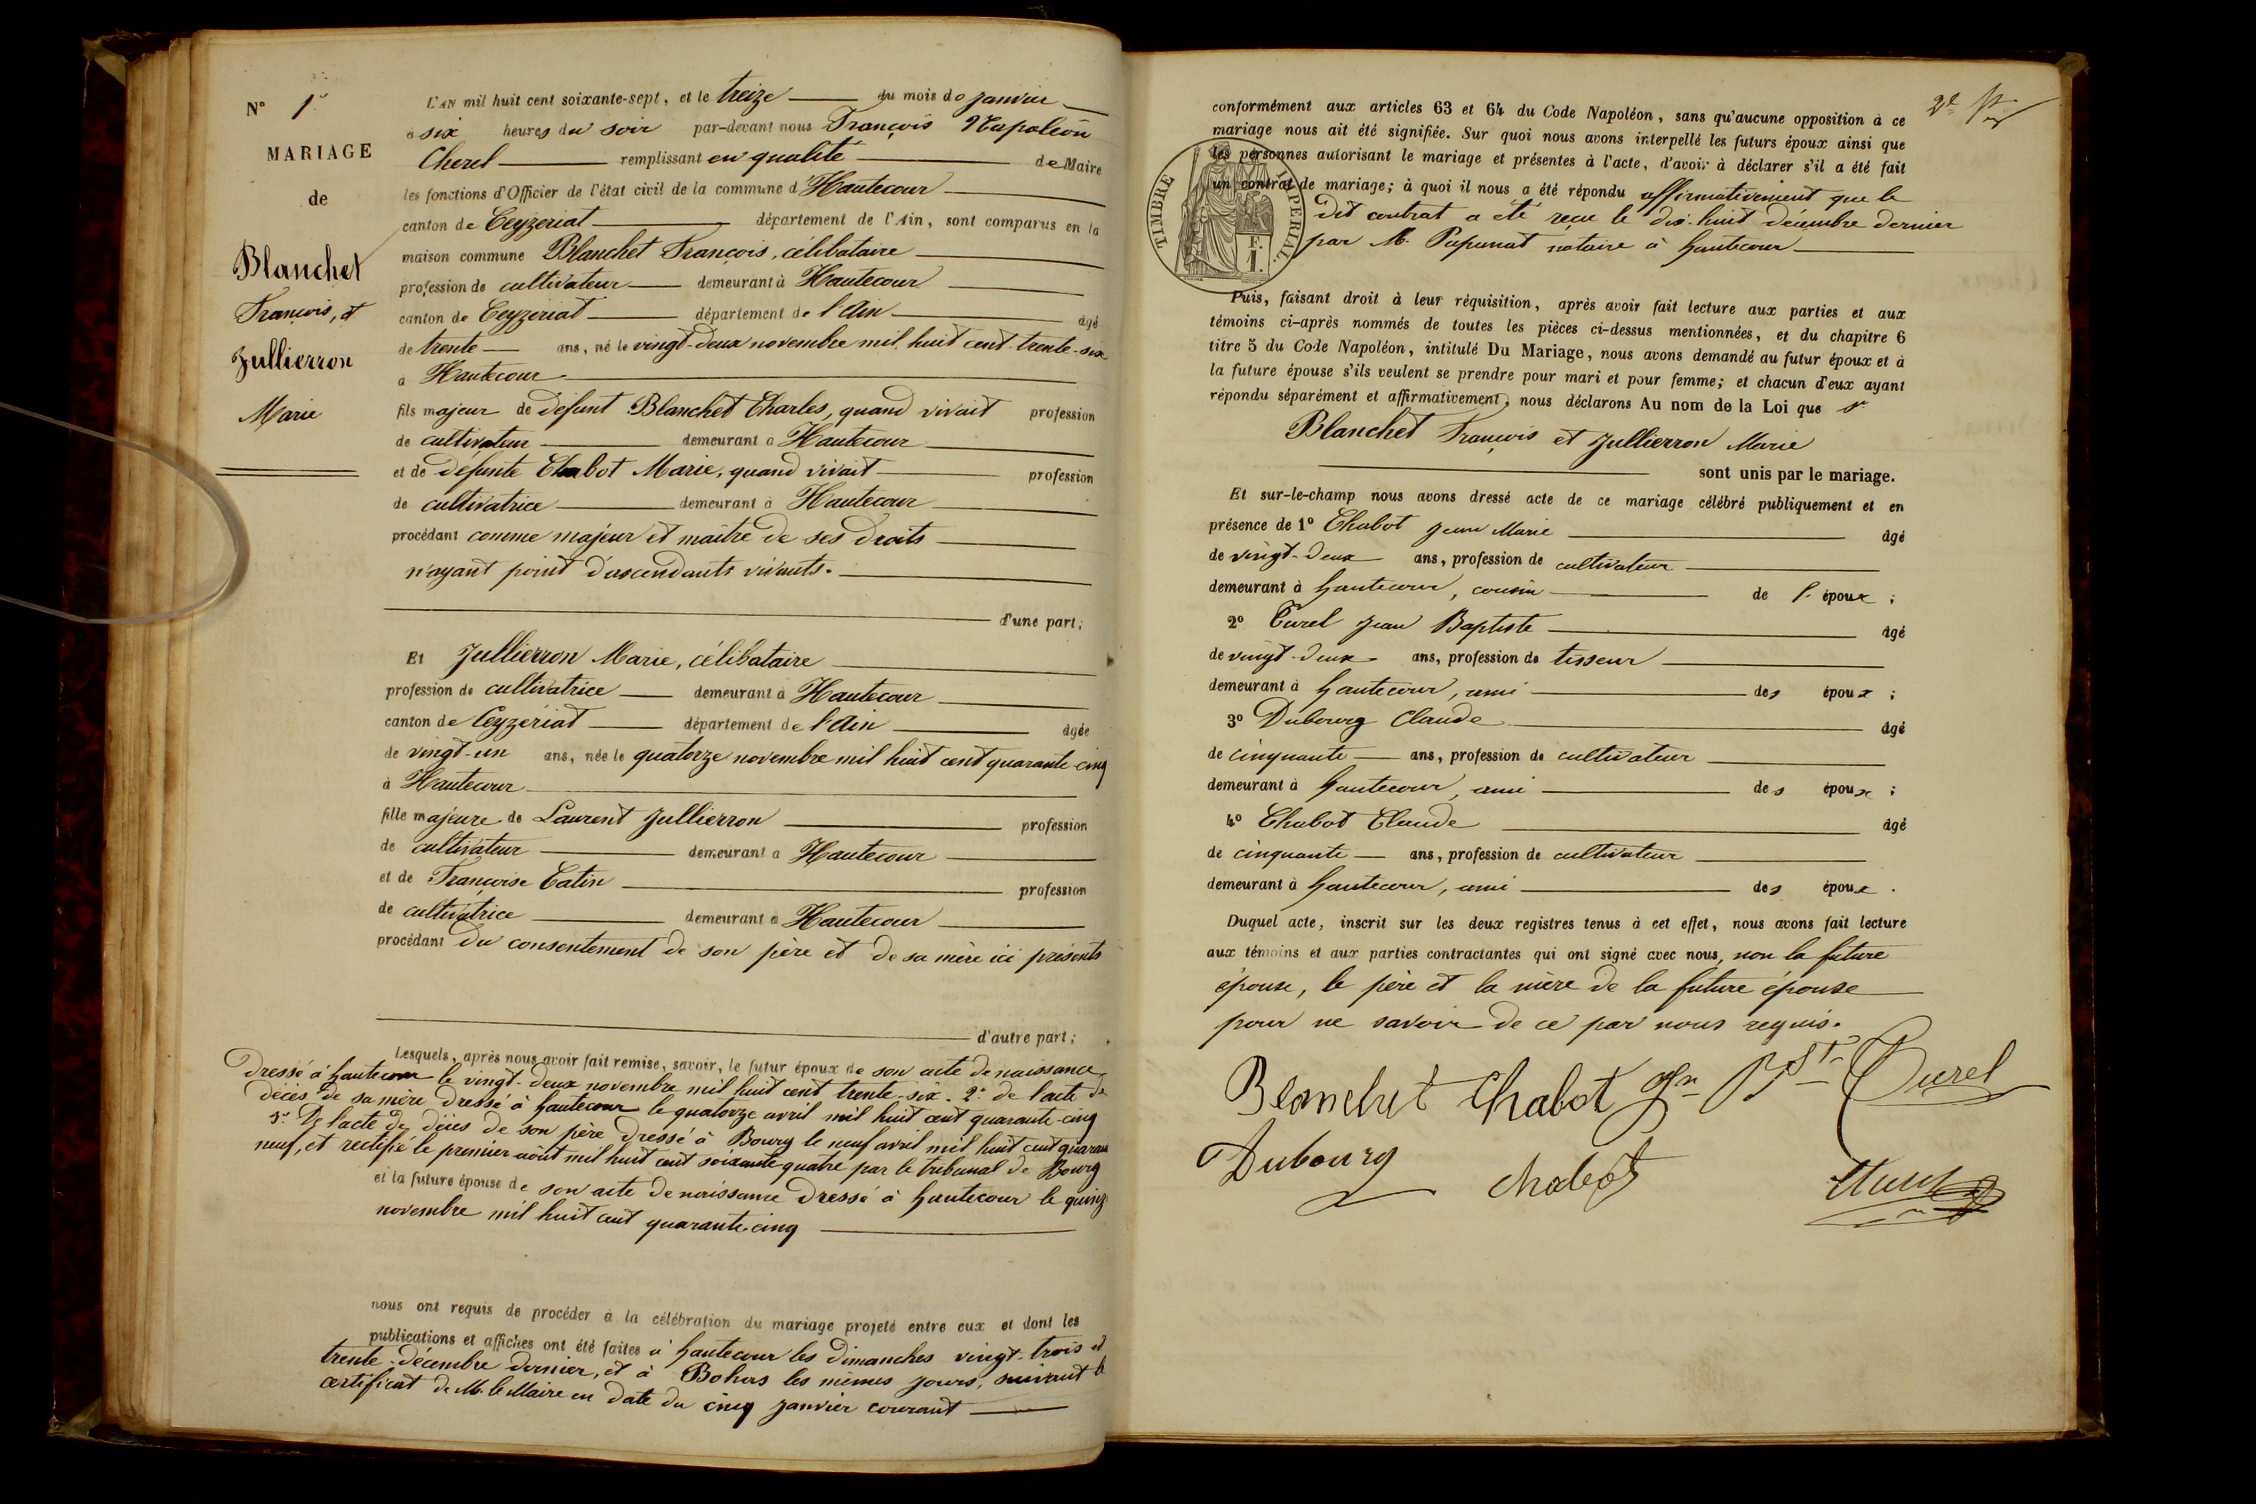 N° 1er
MARIAGE
de
Blanchet
François, et
Jullierron
Marie
L'AN mil huit cent soixante-sept, et le treize du mois de janvier
à six heures du soir par-devant nous François Napoléon
Cherel remplissant en qualité de Maire
les fonctions d'Officier de l'état civil de la commune d'Hautecour
canton de Ceyzeriat département de l'Ain, sont comparus en la
maison commune Blanchet François, célibataire
profession de cultivateur demeurant à Hautecour
canton de Ceyzériat département de l'Ain âgé
de trente ans, né le vingt-deux novembre mil huit cent trente-six
à Hautecour
fils majeur de defunt Blanchet Charles, quand vivait profession
de cultivateur demeurant à Hautecour
et de defunte Chabot Marie, quand vivait profession
de cultivatrice demeurant à Hautecour
procédant comme majeur et maître de ses droits
n'ayant point d'ascendants vivants.
d'une part;
Et Jullierron Marie, célibataire
profession de cultivatrice demeurant à Hautecour
canton de Ceyzériat département de l'Ain âgée
de vingt-un ans, née le quatorze novembre mil huit cent quarante-cinq
à Hautecour
fille majeure de Laurent Jullierron profession
de cultivateur demeurant à Hautecour
et de Françoise Catin profession
de cultivatrice demeurant à Hautecour
procédant du consentement de son père et de sa mère ici présents
d'autre part;
Lesquels, après nous avoir fait remise, savoir, le futur époux de son acte de naissance
dressé à hautecour le vingt-deux novembre mil huit cent trente-six. 2° de l'acte de
décès de sa mère dressé à hautecour le quatorze avril mil huit cent quarante-cinq
3° De l'acte de décès de son père dressé à Bourg le neuf avril mil huit cent quarante
neuf, et rectifié le premier août mil huit cent soixante quatre par le tribunal de Bourg
et la future épouse de son acte de naissance dressé à hautecour le quinze
novembre mil huit cent quarante-cinq
nous ont requis de procéder à la célébration du mariage projeté entre eux et dont les
publications et affiches ont été faites à hautecour les dimanches vingt-trois et
trente décembre dernier, et à Bohas les mêmes jours, suivant le
certificat de M. le Maire en date du cinq janvier courant
conformément aux articles 63 et 64 du Code Napoléon, sans qu'aucune opposition à ce
mariage nous ait été signifiée. Sur quoi nous avons interpellé les futurs époux ainsi que
les personnes autorisant le mariage et présentes à l'acte, d'avoir à déclarer s'il a été fait
un contrat de mariage; à quoi il nous a été répondu affirmativement que le
dit contrat a été reçu le dix-huit décembre dernier
par M. Papunat notaire à hautecour
TIMBRE IMPÉRIAL
F.
1.
Puis, faisant droit à leur réquisition, après avoir fait lecture aux parties et aux
témoins ci-après nommés de toutes les pièces ci-dessus mentionnées, et du chapitre 6
titre 5 du Code Napoléon, intitulé Du Mariage, nous avons demandé au futur époux et à
la future épouse s'ils veulent se prendre pour mari et pour femme; et chacun d'eux ayant
répondu séparément et affirmativement, nous déclarons Au nom de la Loi que
Blanchet François et Jullierron Marie
sont unis par le mariage.
Et sur-le-champ nous avons dressé acte de ce mariage célébré publiquement et en
présence de 1° Chabot Jean Marie âgé
de vingt-deux ans, profession de cultivateur
demeurant à hautecour, cousin de l' époux;
2° Curel Jean Baptiste âgé
de vingt-deux ans, profession de tisseur
demeurant à hautecour, ami des époux;
3° Dubourg Claude âgé
de cinquante ans, profession de cultivateur
demeurant à hautecour, ami des époux;
4° Chabot Claude âgé
de cinquante ans, profession de cultivateur
demeurant à hautecour, ami des époux.
Duquel acte, inscrit sur les deux registres tenus à cet effet, nous avons fait lecture
aux témoins et aux parties contractantes qui ont signé avec nous, non la future
épouse, le père et la mère de la future épouse
pour ne savoir de ce par nous requis.
Blanchet Chabot Jn Bste Curel
Dubourg Chabot